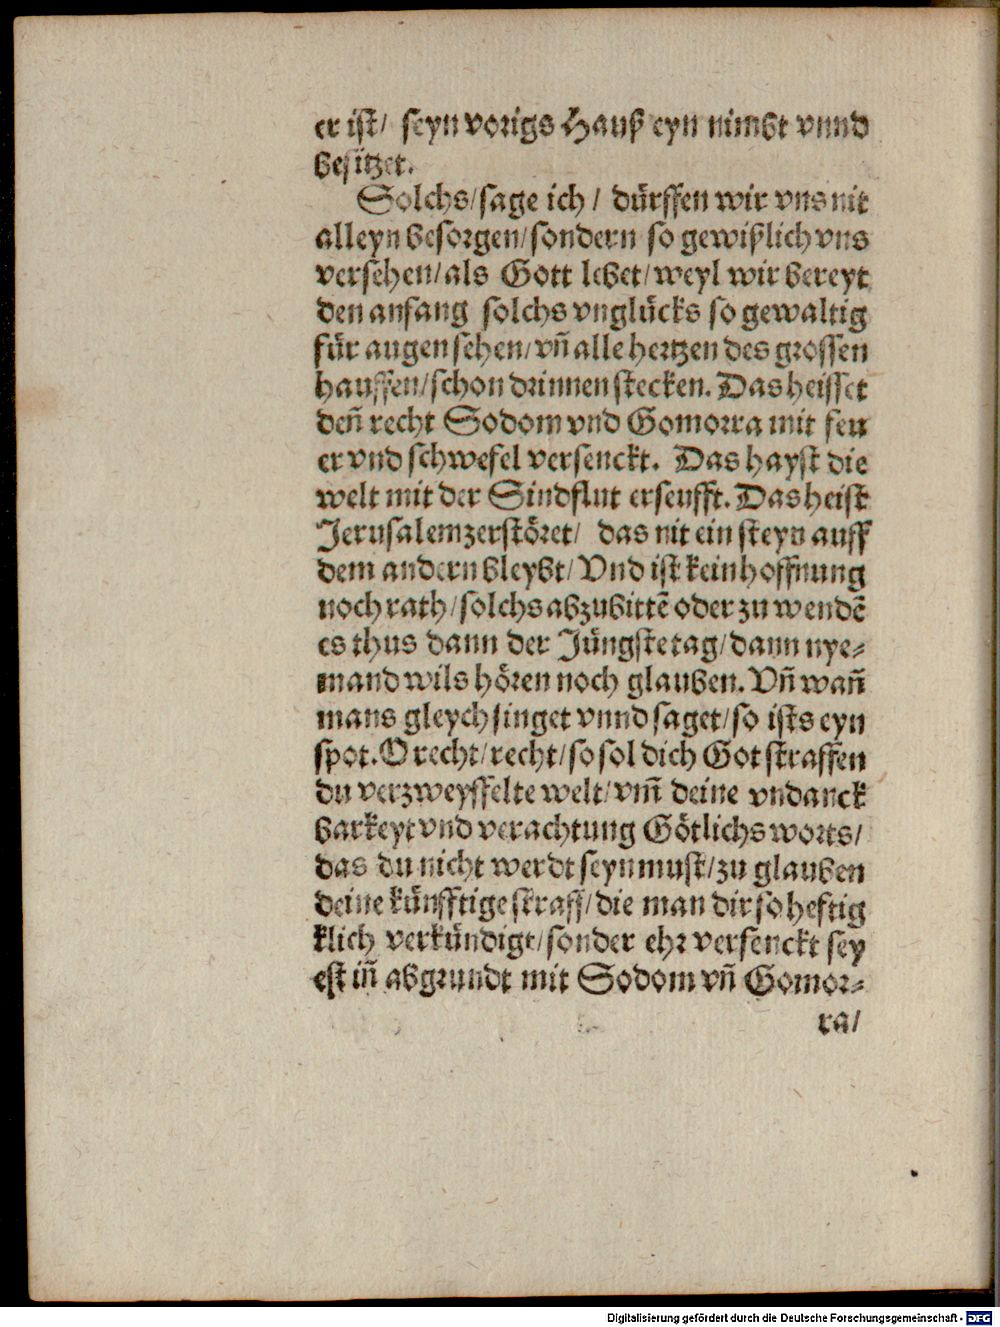 er ist/ seyn vorigs Hauß eyn nimbt vnnd
besitzet.
Solchs/sage ich/ dürffen wir vns nit
alleyn besorgen/sondern so gewißlich vns
versehen/als Gott lebet/weyl wir bereyt
den anfang solchs vnglücks so gewaltig
für augen sehen/vñ alle hertzen des grossen
hauffen/schon drinnen stecken. Das heisset
deñ recht Sodom vnd Gomorra mit feu
er vnd schwefel versenckt. Das hayst die
welt mit der Sindflut erseufft. Das heist
Jerusalem zerstöret/ das nit ein steyn auff
dem andern bleybt/Vnd ist kein hoffnung
noch rath/solchs abzubittẽ oder zu wendẽ
es thus dann der Jüngste tag/dann nye⸗
mand wils hören noch glauben. Vñ wañ
mans gleych singet vnnd saget/so ists eyn
spot. O recht/recht/so sol dich Got straffen
du verzweyffelte welt/vm̃ deine vndanck
barkeyt vnd verachtung Götlichs worts/
das du nicht werdt seyn must/zu glauben
deine künfftige straff/die man dir so heftig
klich verkündigt/sonder ehr versenckt sey
est iñ abgrundt mit Sodom vñ Gomor⸗
ra/
Digitalisierung gefördert durch die Deutsche Forschungsgemeinschaft - DFG